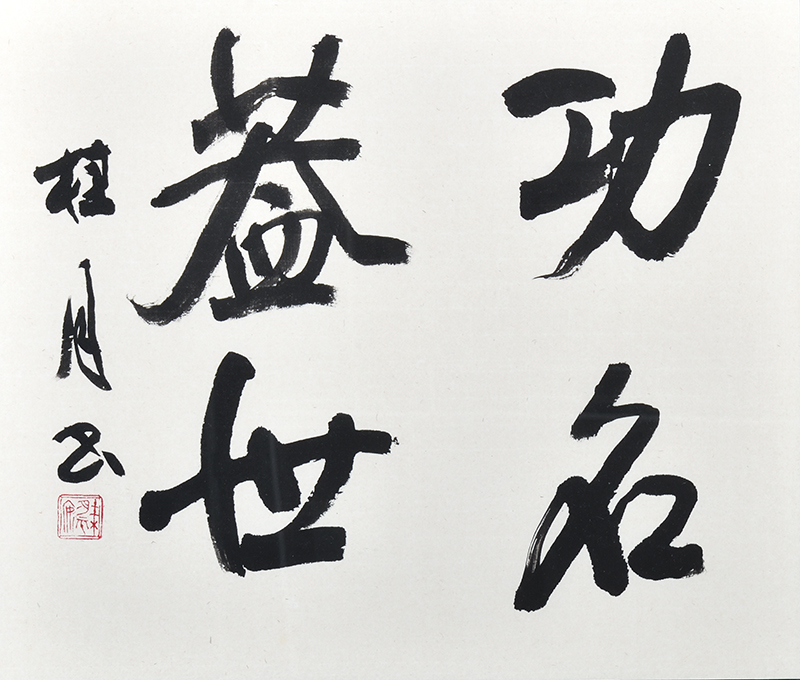 功名
蓋世
桂月书